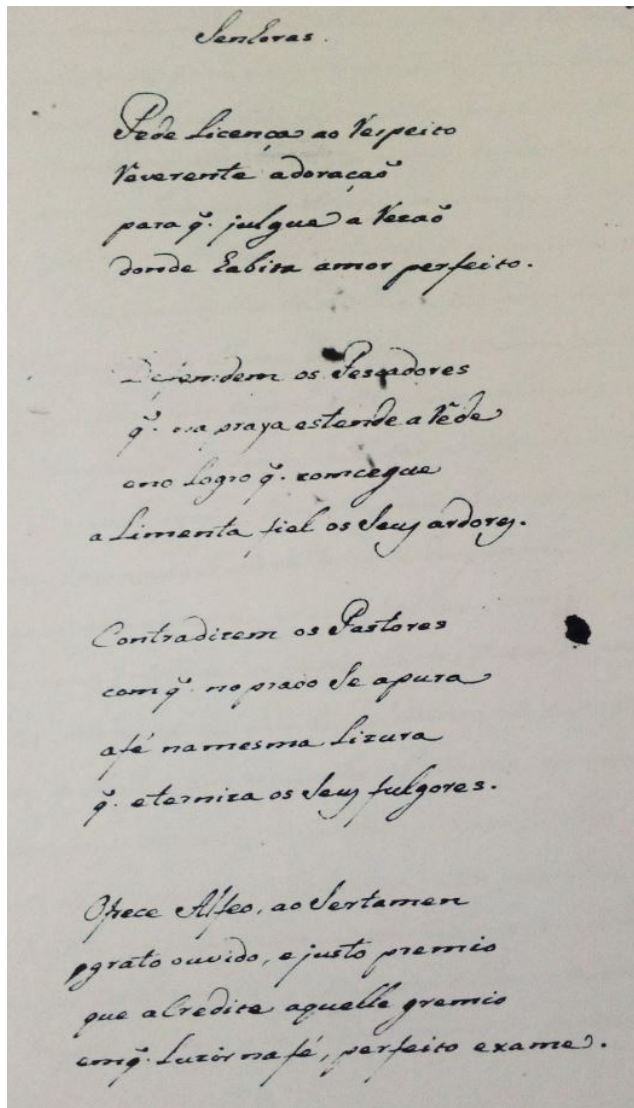 Senhores.
Pede Licença ao Respeito
Reverente adoraçaõ
para q̃. julgue a Rezaõ
donde habita amor perfeito.
Defendem os Pescadores
q̃. na praya estende a Rede
eno Logro q̃. comcegue
aLimenta fiel os Seus ardores.
Contradizem os Pastores
com q̃. no prado Se apura
afé namesma Lizura
q̃. eterniza os Seus fulgores.
Ofrece Alfeo, ao Sertamen
grato ouvido, e justo premio
que aCredite aquelle gremio
emq̃. Luzir nafé, perfeito exame.